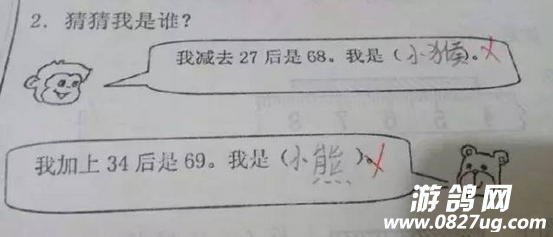 2. 猜猜我是谁?
我减去 27 后是 68。我是(小猴)。
我加上 34 后是 69。我是(小熊)。
游鸽网
www.0827ug.com